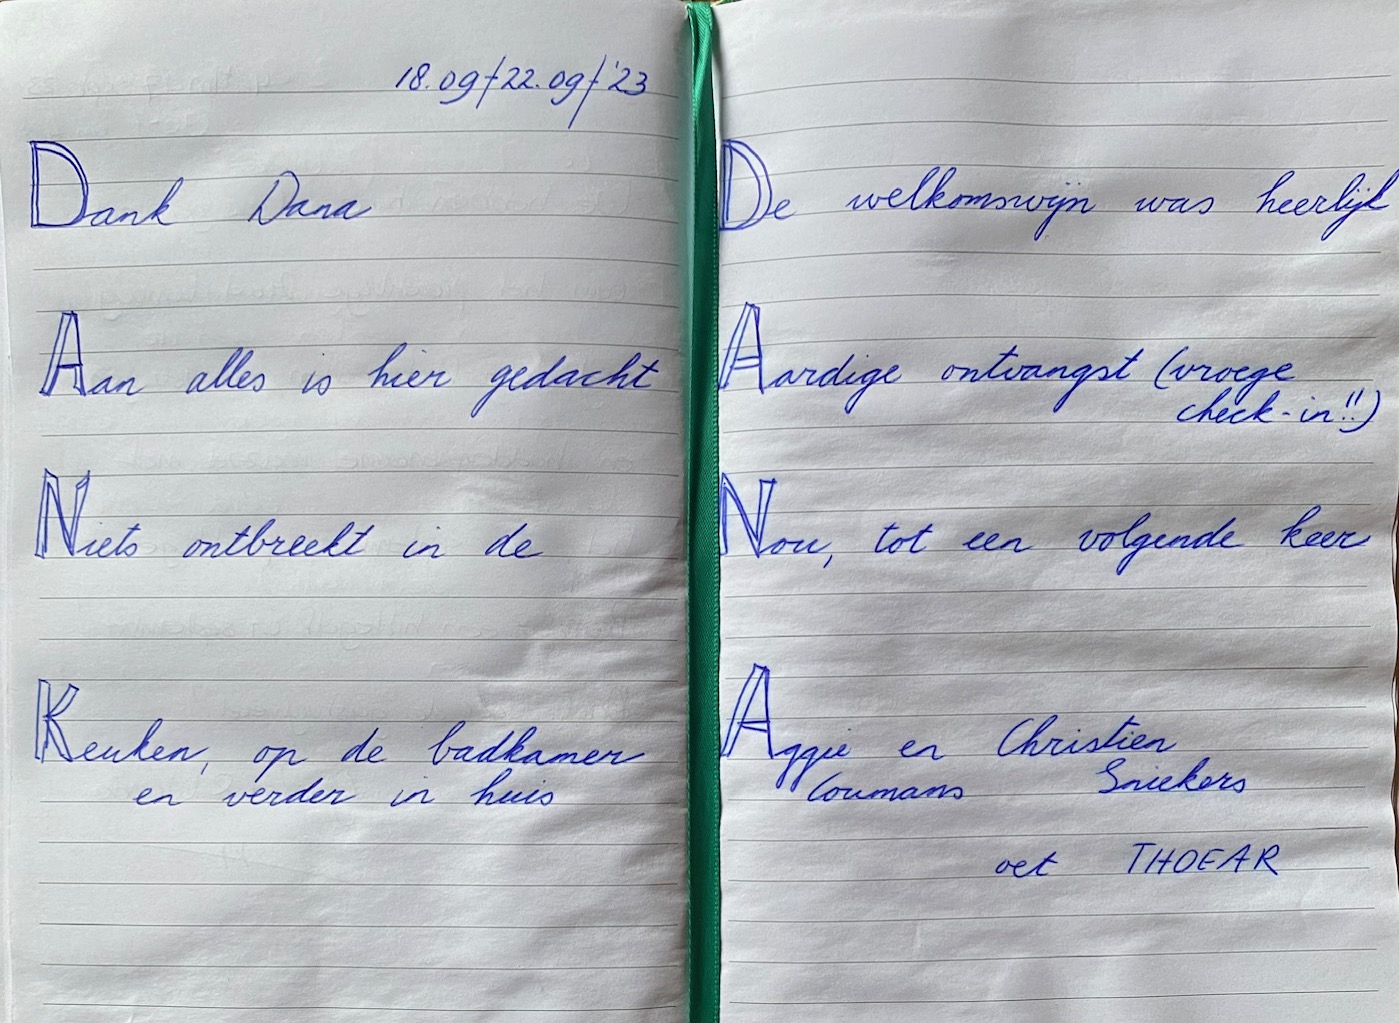 18.09/22.09/'23
Dank Dana
Aan alles is hier gedacht
Niets ontbreekt in de
Keuken, op de badkamer
en verder in huis
De welkomswijn was heerlijk
Aardige ontvangst (vroege
check-in!!)
Nou, tot een volgende keer
Aggie en Christien
Coumans Sniekers
oet THOEAR